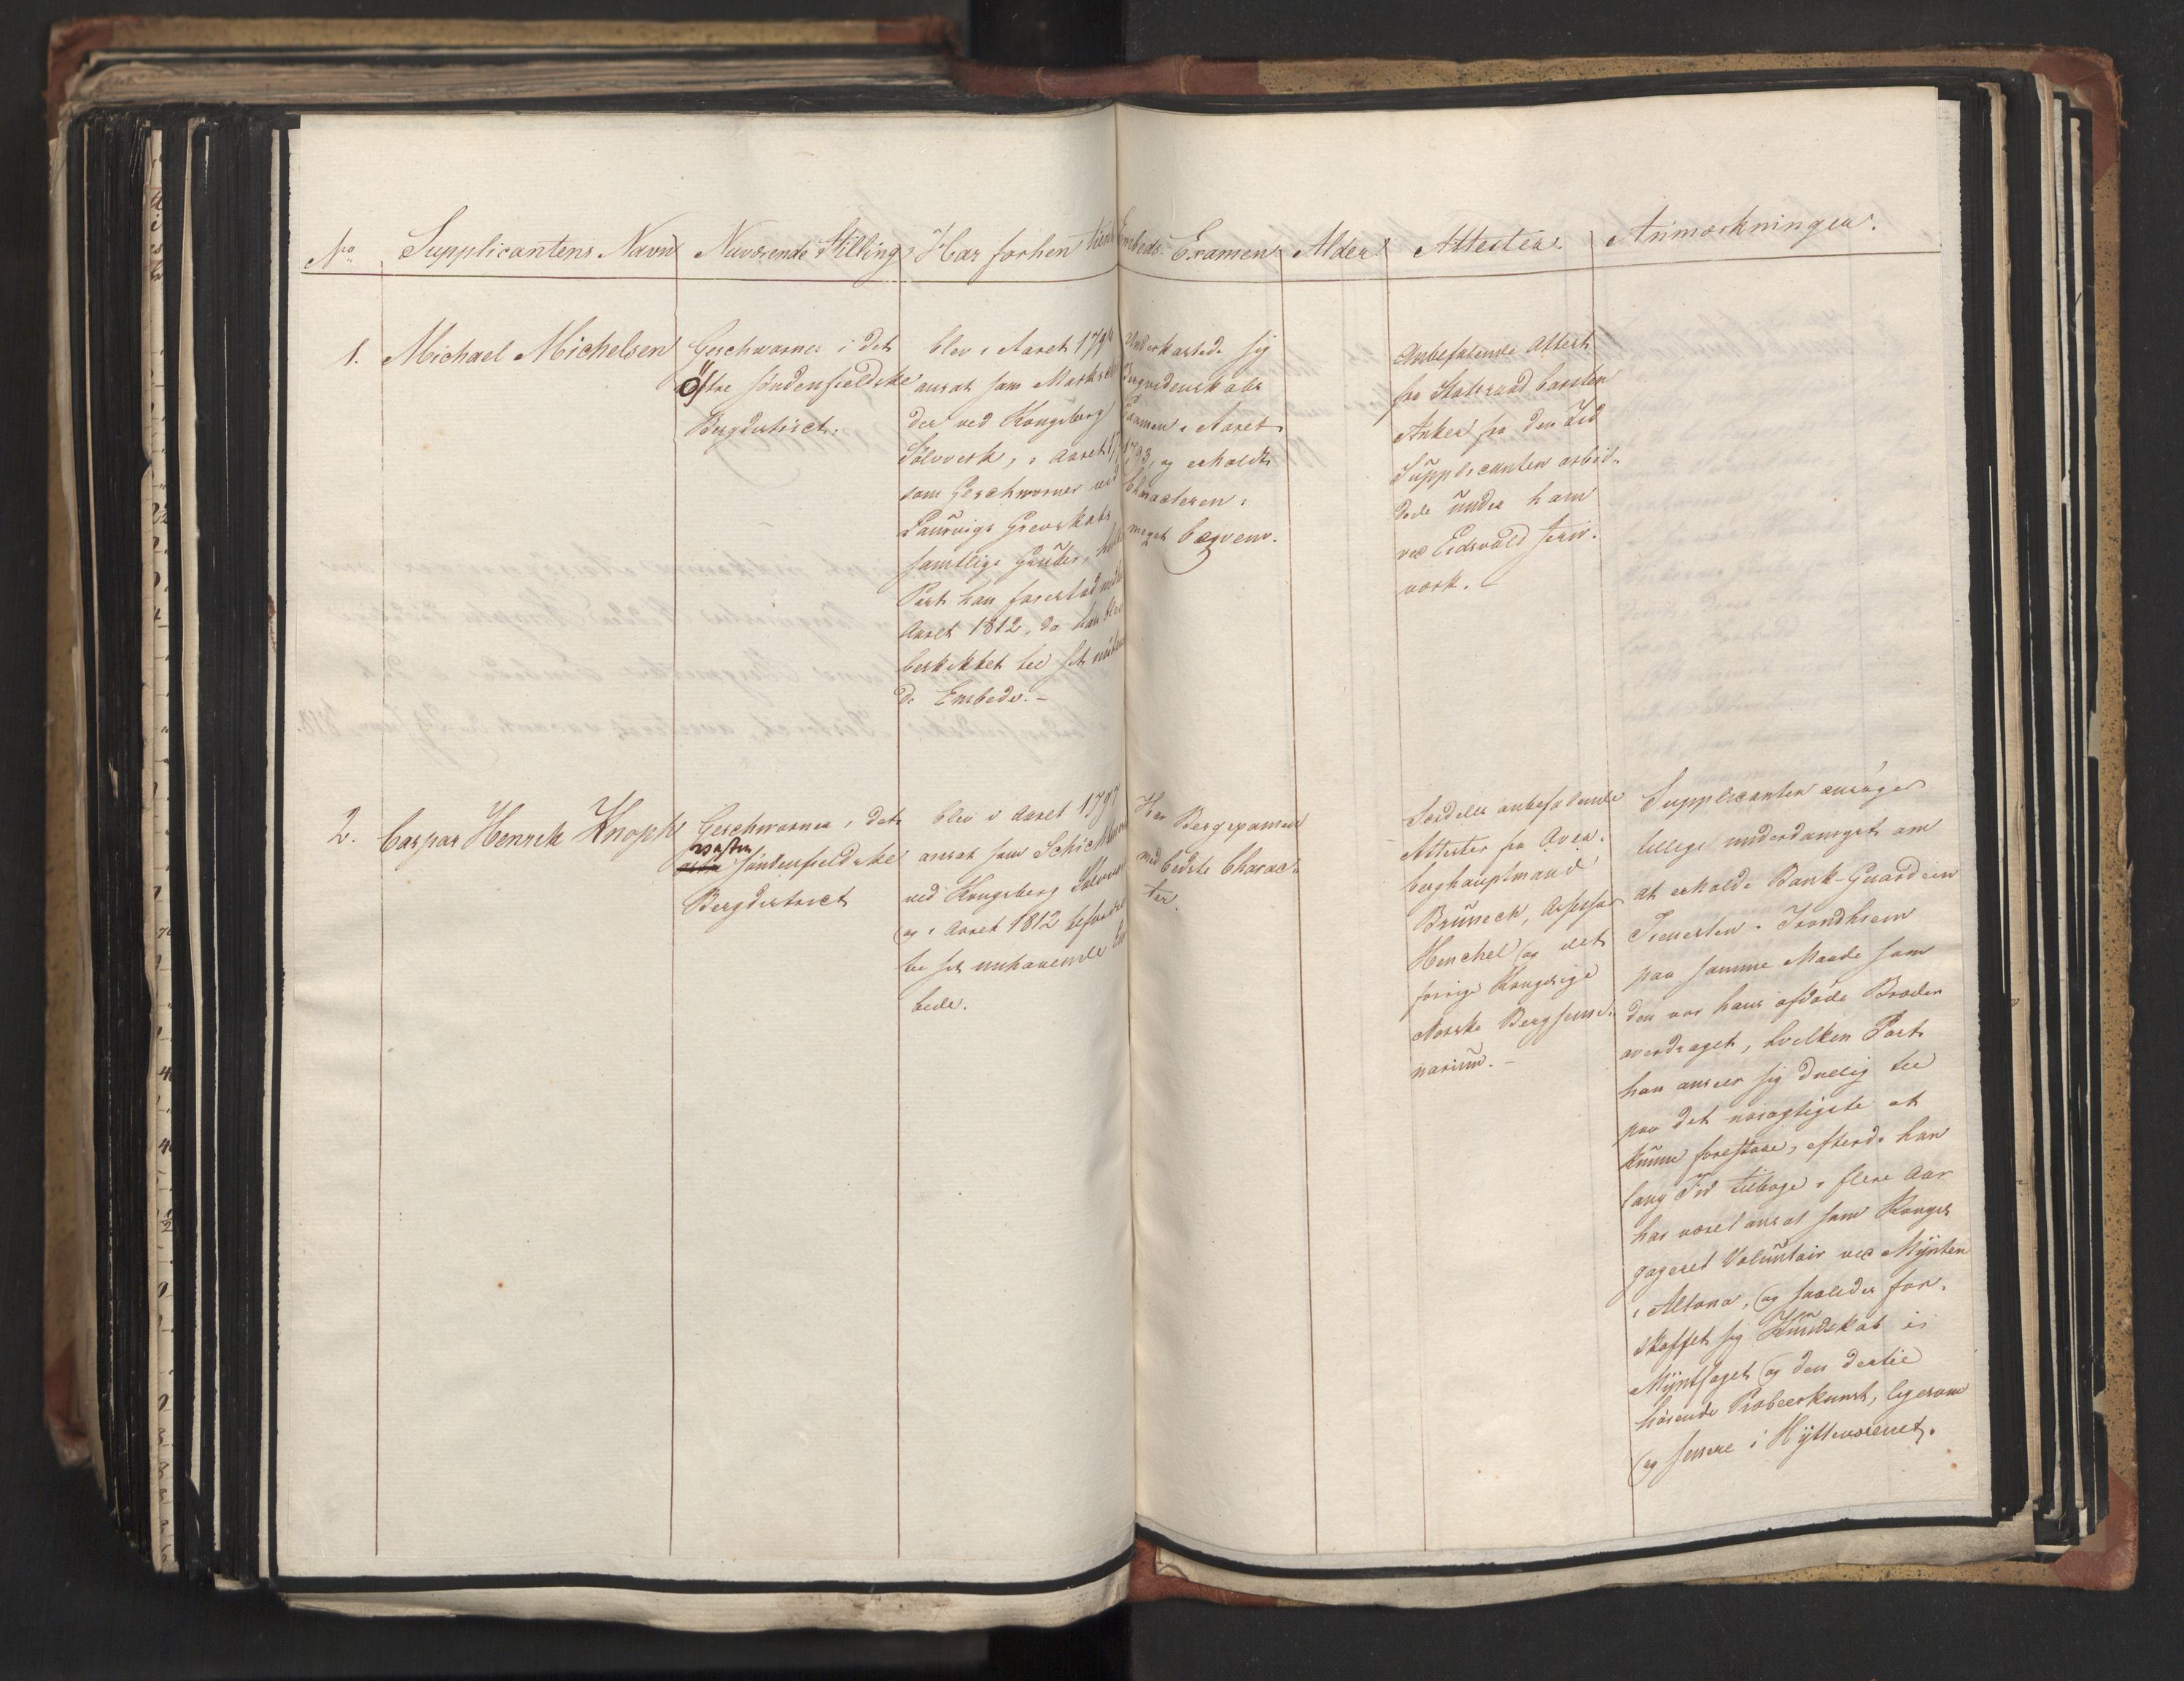 No Supplicantens Navn Nuværende Stilling Har forhen tient Embeds-Examen Alder Attester. Anmærkninger.
1. Michael Michelsen
Geschworner i det
Östre søndenfieldske
Bergdistrict.
blev i Aaret 1794
ansat som Marksche
der ved Kongsberg
Sølvverk, i Aaret 17
som Geschworner ved
Laurvigs Grevskabs
samtlige Gruber,
Post han forestod
Aaret 1812, da han blev
beskikket til sit
de Embede.-
Underkastede sig
Bergvidenskabs
Examen i Aaret
1793, og erholdt
Characteren:
meget beqvem.
Anbefalende Attest
fra Statsraad Carsten
Anker fra den Tid
Supplicanten arbei-
dede under ham
ved Eidsvold Jern-
værk.
2. Caspar Henrich Knoph
Geschworner i det
vestre
østre Søndenfieldske
Bergdistrict
blev i Aaret 1797
ansat som
ved Kongsberg Sølvværk
og i Aaret 1812 befordret
til sit innhavende Em
bede.
Har Bergexamen
med bedste Charac-
ter.
Særdeles anbefalende
Attester fra Over-
berghauptmand
Brünech, Assessor
Henchel og det
forrige Kongelige
Norske Bergsemi-
narium.-
Supplicanten ansøger
tillige underdanigst om
at erholde Bank-Guardein
Tienesten i Trondhiem
paa samme Maade som
den var hans afdøde Broder
overdraget, hvilken Post
han anseer sig duelig til
paa det nøiagtigste at
kunne forestaae, efterdi han
lang Tid tilbage i flere Aar
har været ansat som Konges
gageret Voluntair ved Mynten
i Altona, og saaledes for-
skaffet sig Kundskab i
Myntfaget og den dertil
hørende Probeerkunst, ligesom
og senere i Hyttevæsenet.